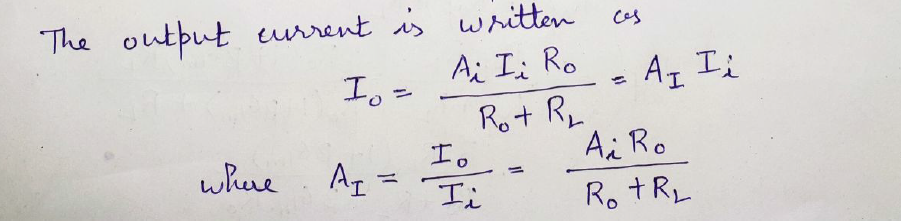 The output current is written as
I₀ = Aᵢ Iᵢ R₀ / (R₀ + R_L) = A_I Iᵢ
where A_I = I₀ / Iᵢ = Aᵢ R₀ / (R₀ + R_L)